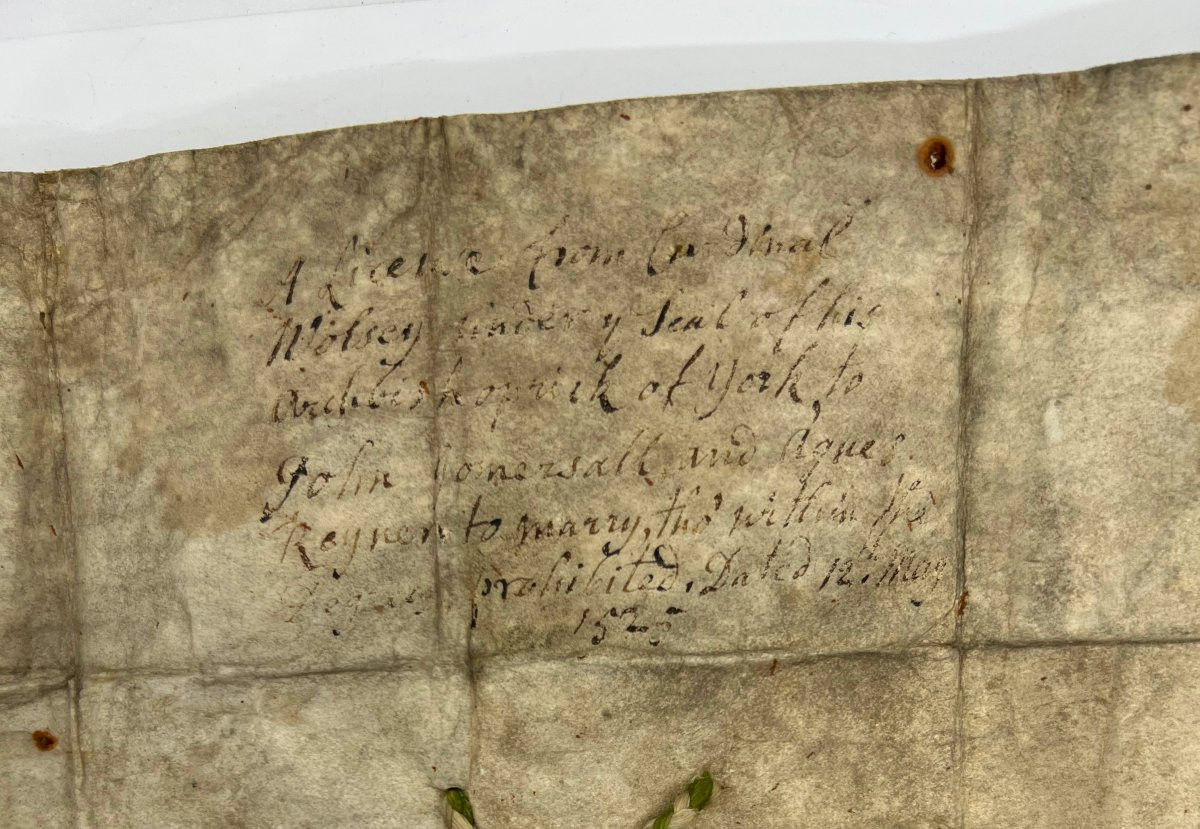 A Licence from Cardinal
Wolsey under y Seal of his
Archbishoprick of York to
John Somersall and Agnes
Reyner to marry, tho' within the
Degrees prohibited. Dated 12th. May
1525